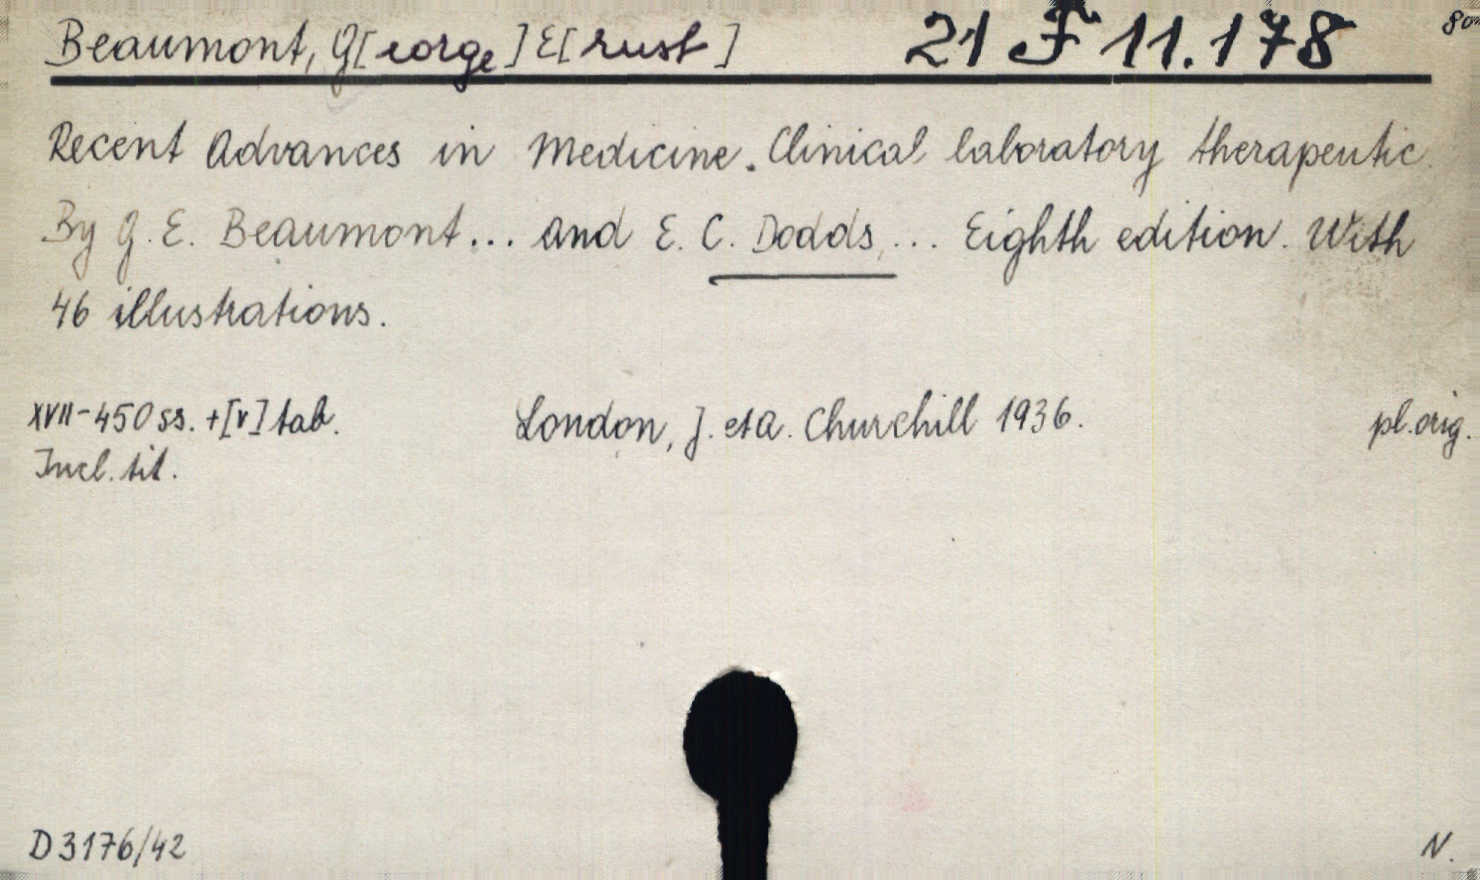 Beaumont, G[eorge] E[rust] 21 F 11.178
Recent Advances in Medicine. Clinical laboratory therapeutic.
By G. E. Beaumont... and E. C. Dodds, ... Eighth edition. With
46 illustrations.
XVII-450 ss. +[V] tab. London, J. et A. Churchill 1936. pl. orig.
Incl. tit.
D 3176/42 N.